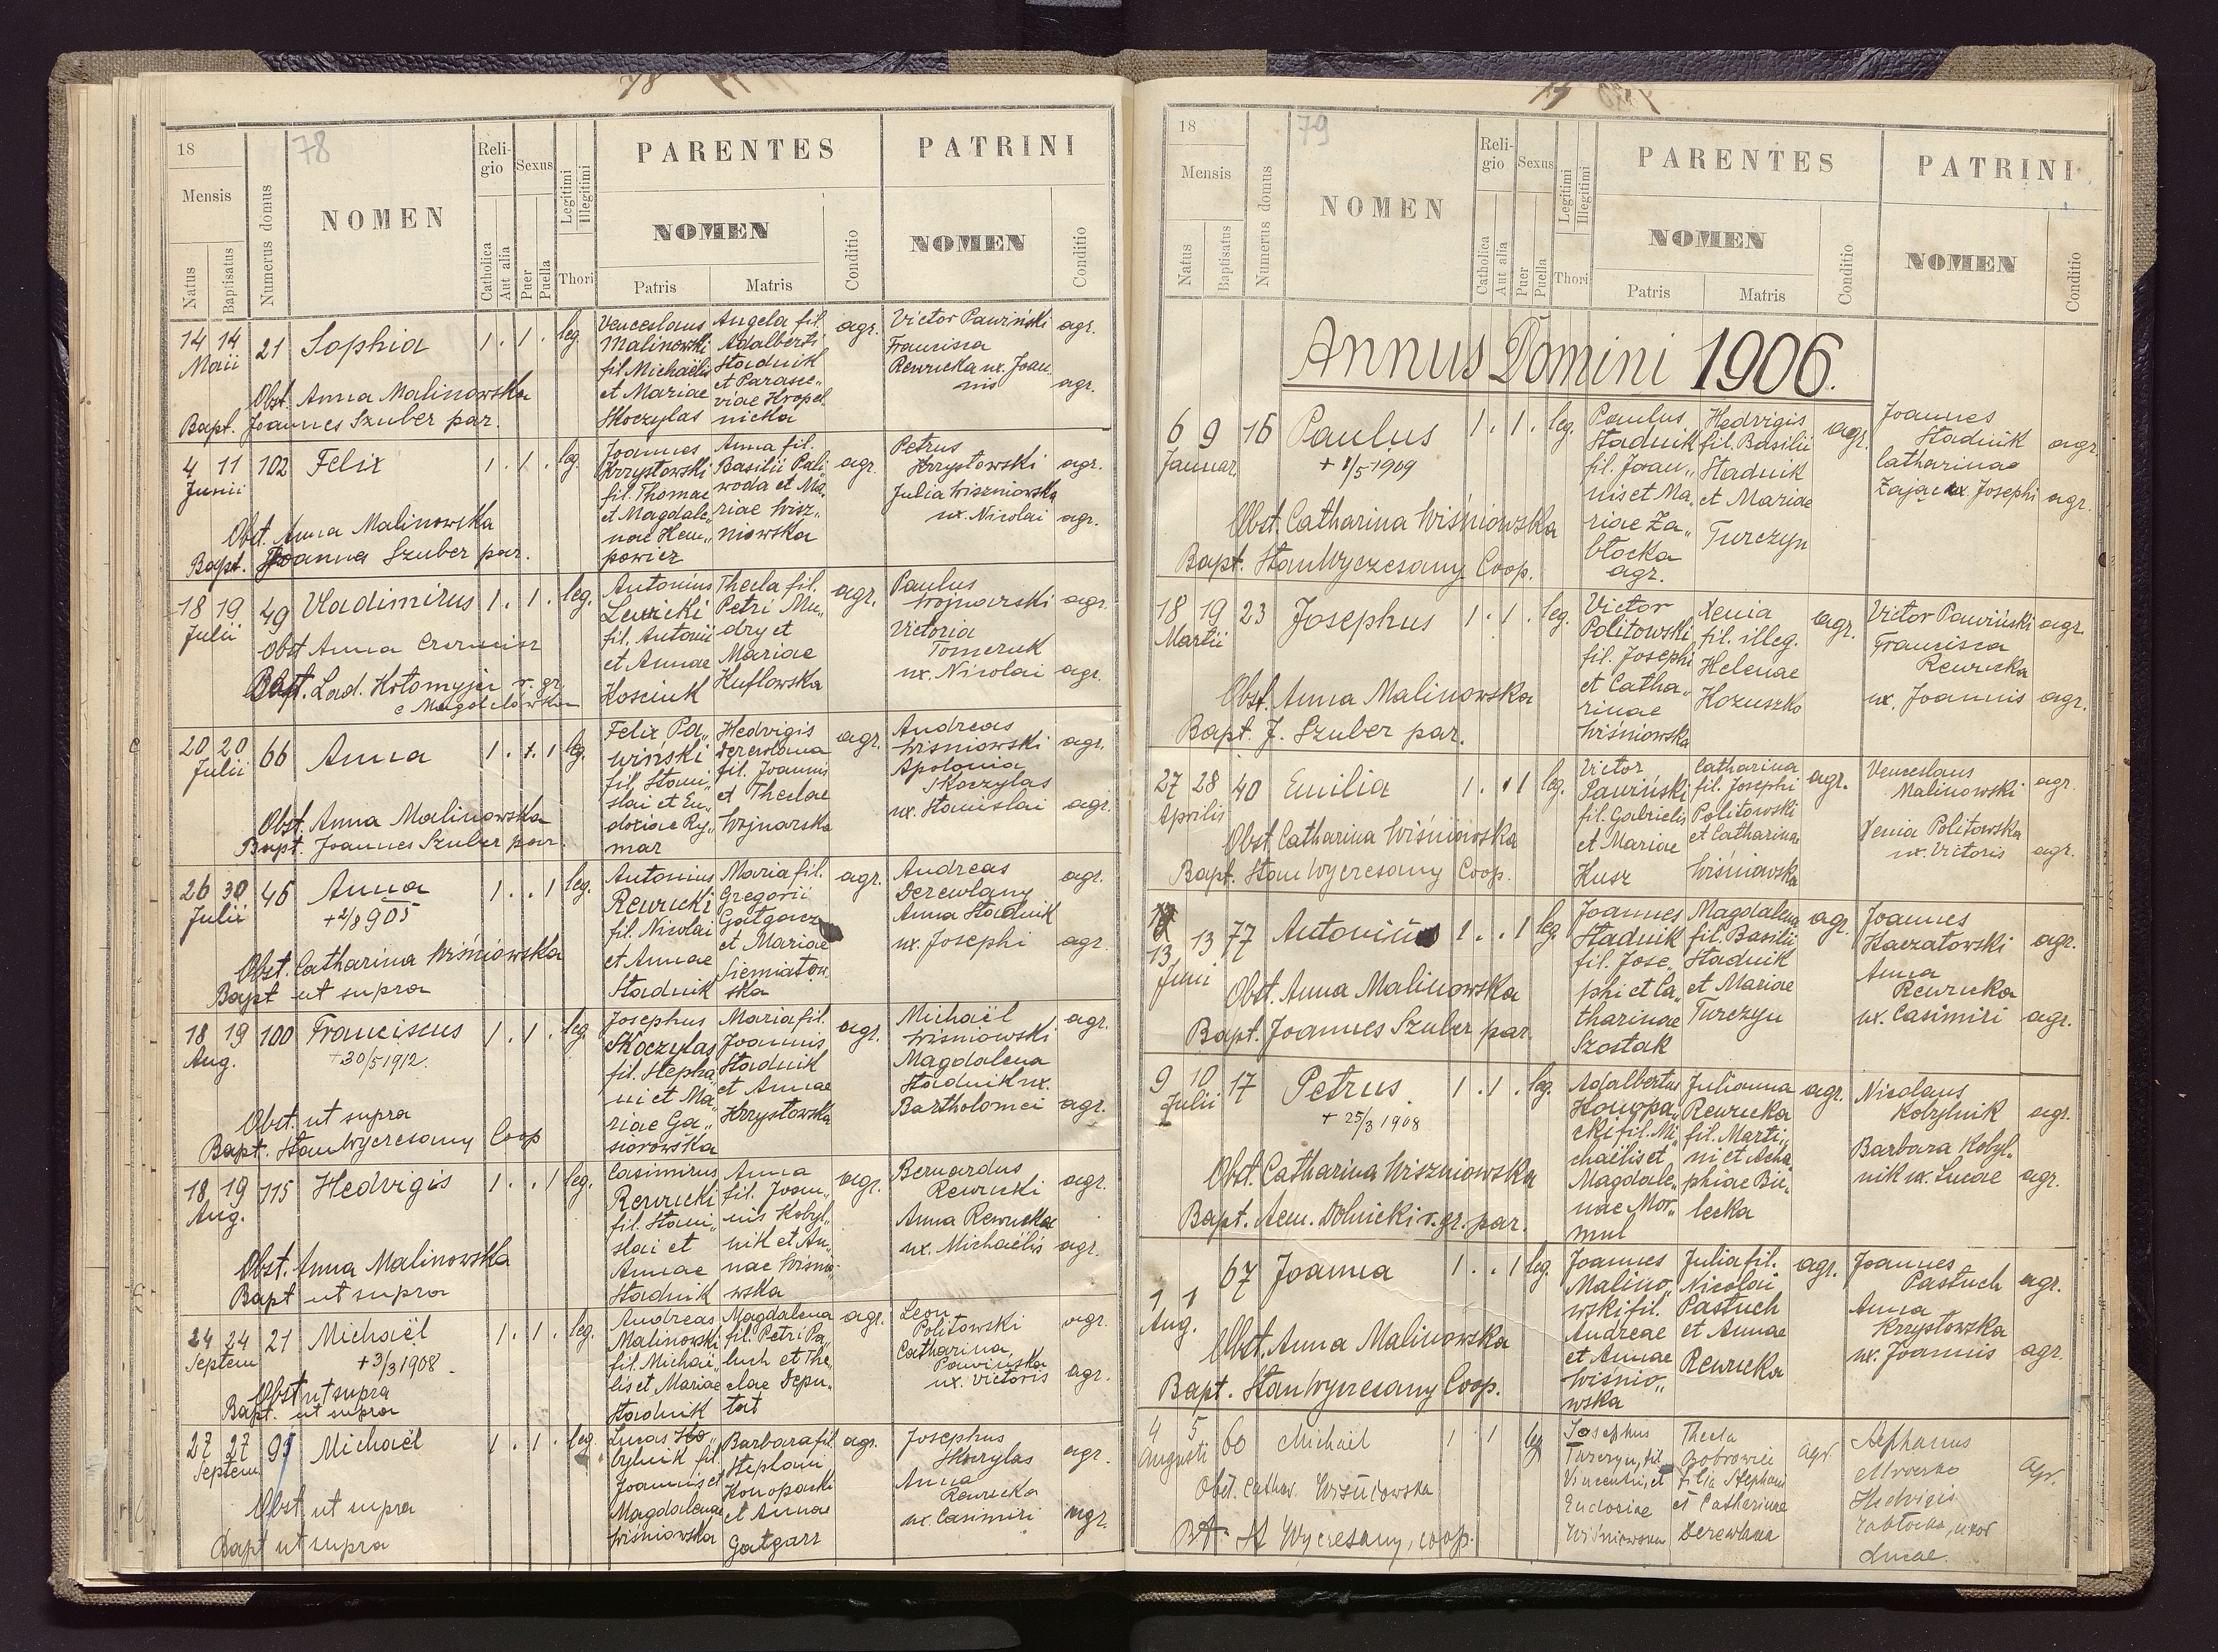 78
18
78
Mensis
Natus
Baptisatus
Numerus domus
NOMEN
Religio
Catholica
Aut alia
Sexus
Puer
Puella
Legitimi
Illegitimi
Thori
PARENTES
NOMEN
Patris
Matris
Conditio
PATRINI
NOMEN
Conditio
14 14 21 Sophia 1 . 1 . leg.
Maii
Obst. Anna Malinowska
Bapt. Joannes Szuber par.
Venceslaus
Malinowski
fil Michaëlis
et Mariae
Skoczylas
Angela fil.
Adalberti
Stadnik
et Parasce„
viae Kropel
nicka
agr.
Victor Pawiński agr.
Francisca
Rewucka ux. Joan„
nis agr.
4 11 102 Felix 1 . 1 . leg.
Junii
Obst. Anna Malinowska
Bapt. Joanna Szuber par.
Joannes
Krzystowski
fil. Thomae
et Magdale„
nae Hem„
powicz
Anna fil.
Basilii Pali„
woda et Ma„
riae Wisz„
niowska
agr.
Petrus
Krzystowski agr.
Julia Wiszniowska
ux. Nicolai agr.
18 19 49 Vladimirus 1 . 1 . leg.
Julii
Obst Anna
Bapt. Lad. Kołomyjec r. gr.
e Magdalówka
Antonius
Lewicki
fil. Antonii
et Annae
Kosciuk
Thecla fil.
Petri Mu„
dry et
Mariae
Kuflowska
agr.
Paulus
Wojnarski agr.
Victoria
Tomczuk
ux. Nicolai agr.
20 20 66 Anna 1 . 1. 1 leg.
Julii
Obst. Anna Malinowska
Bapt. Joannes Szuber par.
Felix Pa„
wiński
fil. Stani„
slai et Eu„
doxiae Ry„
mar
Hedvigis
Derewlana
fil. Joannis
et Theclae
Wojnarska
agr.
Andreas
Wisniowski agr.
Apolonia
Skoczylas
ux. Stanislai agr.
26 30 46 Anna 1 . . 1 leg.
Julii
+2/8 905
Obst. Catharina Wiśniowska
Bapt ut supra
Antonius
Rewucki
fil. Nicolai
et Annae
Stadnik
Maria fil.
Gregorii
Gatgarz
et Mariae
Siemiatow
ska
agr.
Andreas
Derewlany agr.
Anna Stadnik
ux. Josephi agr.
18 19 100 Franciscus 1 . 1 . leg.
Aug.
+30/5 1912.
Obst. ut supra
Bapt. Stan Wyczesany Coop
Josephus
Skoczylas
fil. Stepha„
ni et Ma„
riae Ga„
siorowska
Maria fil.
Joannis
Stadnik
et Annae
Krzystowska
agr.
Michaël
Wisniowski agr.
Magdalena
Stadnik ux.
Bartholomei agr.
18 19 115 Hedvigis 1 . . 1 leg.
Aug.
Obst. Anna Malinowska
Bapt ut supra
Casimirus
Rewucki
fil. Stani„
slai et
Annae
Stadnik
Anna
fil. Joan„
nis Kobyl„
nik et An„
nae Wisnio„
wska
agr.
Bernardus
Rewucki agr.
Anna Rewucka
ux. Michaëlis agr.
24 24 21 Michaël 1 . 1 . leg.
Septem
+3/3 1908.
Obst ut supra
Bapt. ut supra
Andreas
Malinowski
fil. Michaë„
lis et Mariae
Stadnik
Magdalena
fil. Petri Pa„
luch et The„
clae Depu„
tat
agr.
Leon
Politowski agr.
Catharina
Pawinska
ux. Victoris agr.
27 27 95 Michaël 1 . 1 . leg.
Septem
Obst. ut supra
Bapt ut supra
Lucas Ko„
bylnik fil.
Joannis et
Magdalenae
Wiśniowska
Barbara fil.
Stephani
Konopacki
et Annae
Gatgarz
agr.
Josephus
Skoczylas agr.
Anna
Rewucka
ux. Casimiri agr.
18
79
Mensis
Natus
Baptisatus
Numerus domus
NOMEN
Religio
Catholica
Aut alia
Sexus
Puer
Puella
Legitimi
Illegitimi
Thori
PARENTES
NOMEN
Patris
Matris
Conditio
PATRINI
NOMEN
Conditio
Annus Domini 1906.
6 9 16 Paulus 1 . 1 . leg.
Januar
+ 1/5 1909
Obst. Catharina Wiśniowska
Bapt. Stan Wyczesany Coop.
Paulus
Stadnik
fil. Joan„
nis et Ma„
riae Za„
błocka
agr.
Hedvigis
fil. Basilii
Stadnik
et Mariae
Turczyn
agr.
Joannes
Stadnik agr.
Catharinae
Zając ux. Josephi agr.
18 19 23 Josephus 1 . 1 . leg.
Martii
Obst. Anna Malinowska
Bapt. J. Szuber par.
Victor
Politowski
fil. Josephi
et Catha„
rinae
Wiśniowska
Xenia
fil. illeg.
Helenae
Kozuszko
agr.
Victor Pawiński agr.
Francisca
Rewucka
ux. Joannis agr.
27 28 40 Emilia 1 . . 1 leg.
Aprilis
Obst Catharina Wiśniowska
Bapt. Stan Wyczesany Coop.
Victor
Pawiński
fil. Gabrielis
et Mariae
Kusz
Catharina
fil. Josephi
Politowski
et Catharinae
Wiśniowska
agr.
Venceslaus
Malinowski agr.
Xenia Politowska
ux. Victoris agr.
13 13 77 1 . . 1 leg.
Juni
Obst. Anna Malinowska
Bapt. Joannes Szuber par.
Joannes
Stadnik
fil. Jose„
phi et Ca„
tharinae
Szostak
Magdalena
fil. Basilii
Stadnik
et Mariae
Turczyn
agr.
Joannes
Kaczatowski agr.
Anna
Rewucka
ux. Casimiri agr.
9 10 17 Petrus. 1 . 1 . leg.
Julii
+ 25/3 1908
Obst. Catharina Wiszniowska
Bapt. Aem. Dolnicki r. gr. par.
Adalbertus
Konopa„
cki fil. Mi„
chaëlis et
Magdale„
nae Mor„
mul
Julianna
Rewucka
fil. Marti„
ni et Aga„
phiae Bie„
lecka
agr.
Nicolaus
Kobylnik agr.
Barbara Kobyl„
nik ux. Lucae agr.
1 1 67 Joanna 1 . . 1 leg.
Aug.
Obst. Anna Malinowska
Bapt. Stan Wyczesany Coop.
Joannes
Malino„
wski fil.
Andreae
et Annae
Wiśnio„
wska
Julia fil.
Nicolai
Pastuch
et Annae
Rewucka
agr.
Joannes
Pastuch agr.
Anna
Krzystowska
ux. Joannis agr.
4 5 60 Michaël 1 . 1 leg
Augusti
Obst. Cathar. Wisniowska
Bapt. St Wyczesany, coop.
Josephus
Turczyn, fil.
Vincentii, et
Eudoxiae
Wiśniowska
Thecla
Bobrowicz
filia Stephani
et Catharinae
Derewlana
agr.
Stephanus
Hedvigis
Zabłocka, uxor
Lucae.
agr.